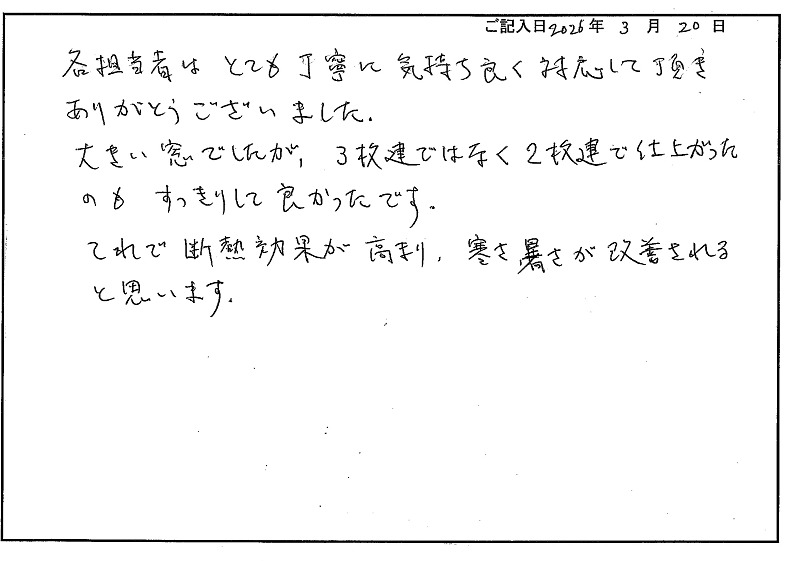 ご記入日2026年 3月 20日
各担当者は とても丁寧に 気持ち良く 対応して頂き
ありがとうございました.
大きい窓でしたが, 3枚建ではなく2枚建で仕上がった
のも すっきりして 良かったです.
これで 断熱効果が 高まり, 寒さ暑さが 改善される
と思います.